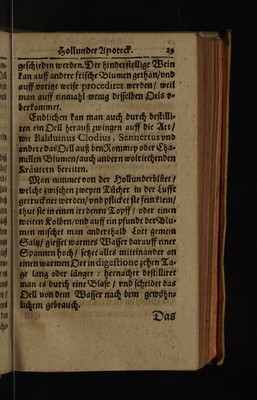 Hollunder Apoteck. 29
geschieden werden. Der hinderstellige Wein
kan auff andere frische Blumen gethan/vnd
auff vorige weise procedirt werden/ weil
man auff einmahl wenig desselben Oels v-
berkommet.
Endlichen kan man auch durch destilli-
ren ein Oell herauß zwingen auff die Art/
wie Balduinus Clodius, Sennertus vnd
andere das Oell auß den Rommey oder Cha-
millen Blumen/auch andern wolriechenden
Kräutern bereiten.
Man nimmet von der Hollunderblüet/
welche zwischen zweyen Tücher in der Lufft
getrucknet werden/vnd pflücket sie fein klein/
thut sie in einen irrdenen Topff/ oder einen
weiten Kolben/vnd auff ein pfundt der Blu-
men mischet man anderthalb Lott gemein
Saltz/ giesset warmes Wasser darauff einer
Spannen hoch/ setzet alles miteinander an
einen warmen Ort in digestione zehen Ta-
ge lang oder länger: hernacher destilliret
man es durch eine Blase/ vnd scheidet das
Oell von dem Wasser nach dem gewöhn-
lichem gebrauch.
Das